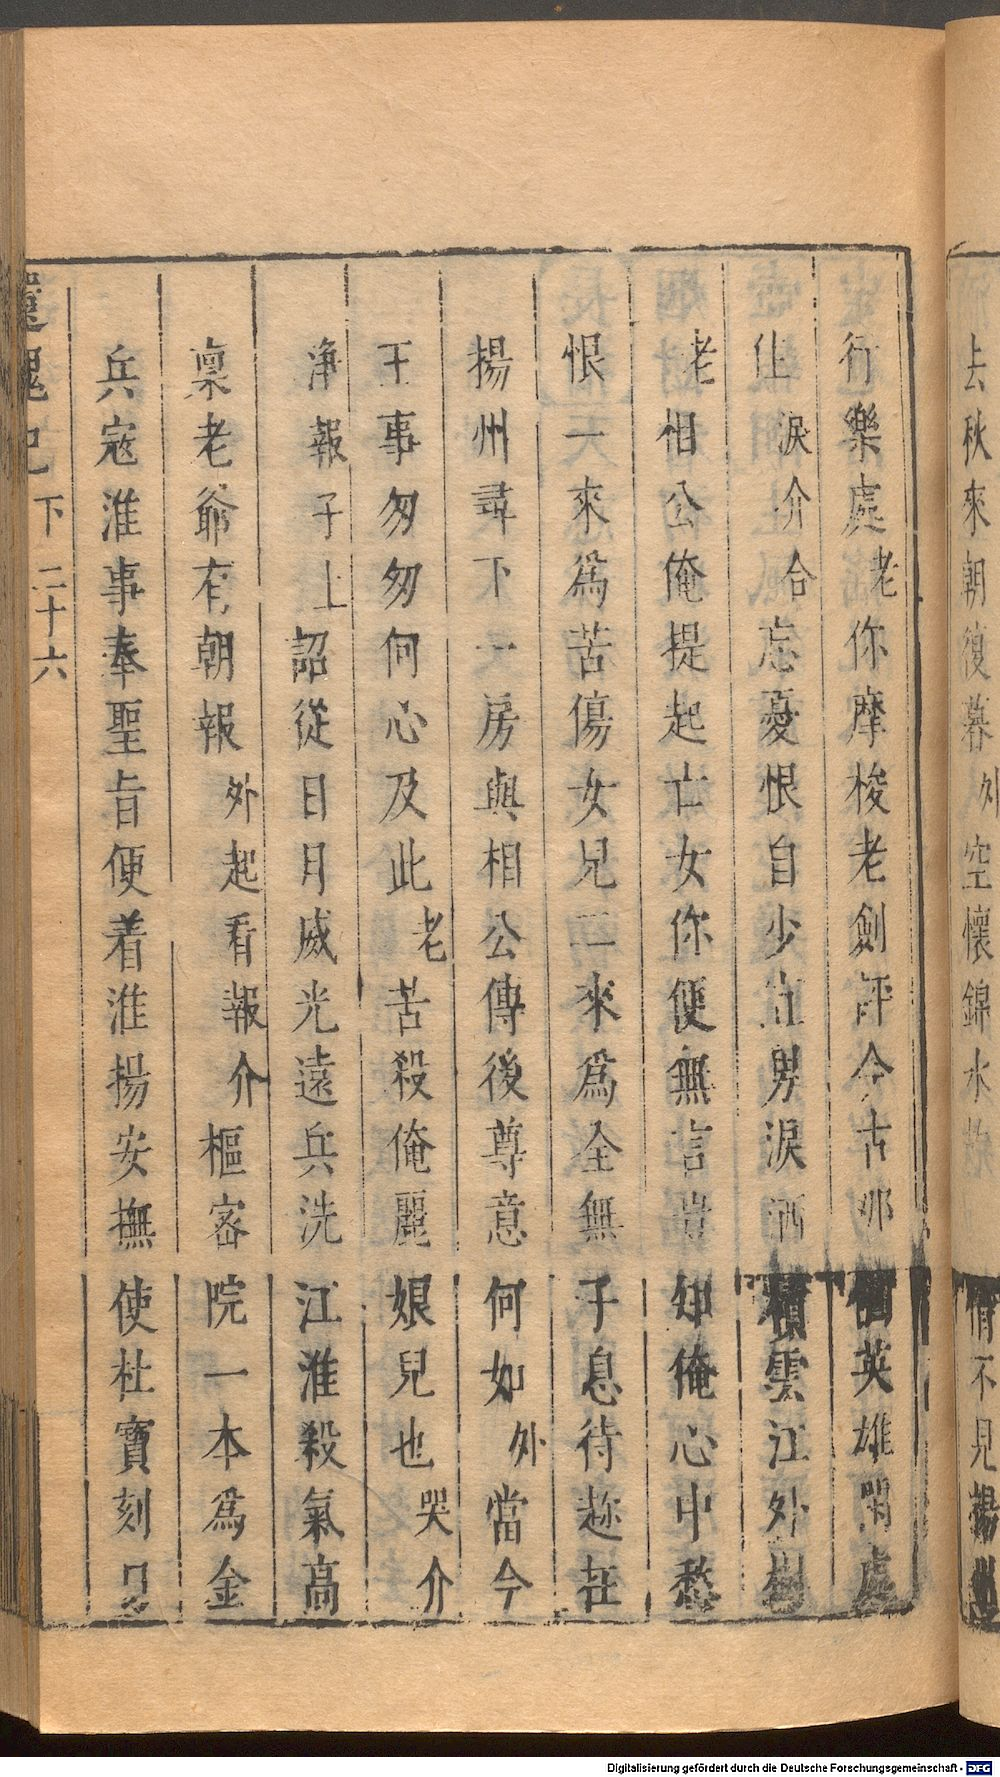 去秋來朝復暮外空懷錦水
情不見揚州
行樂處老你摩梭老劍評今古那個英雄閑處
住淚介合忘憂恨自少宜男淚洒積雲江外樹
老相公俺提起亡女你便無言豈知俺心中愁
恨一來爲苦傷女兒二來爲全無子息待趂在
揚州尋下一房與相公傳後尊意何如外當今
王事匆匆何心及此老苦殺俺麗娘兒也哭介
淨報子上詔從日月威光遠兵洗江淮殺氣高
稟老爺有朝報外起看報介樞密院一本爲金
兵寇淮事奉聖旨便着淮揚安撫使杜寶刻日
還魂記下二十六
Digitalisierung gefördert durch die Deutsche Forschungsgemeinschaft - DFG